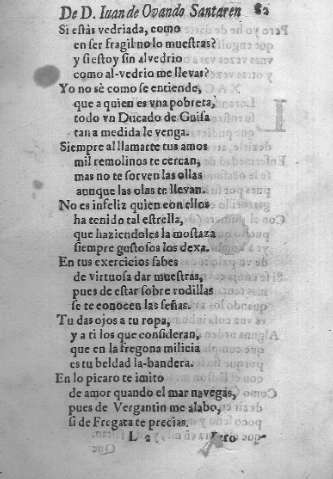 De D. Iuan de Ovando Santaren 82
Si estàs vedriada, como
en ser fragil no lo muestras?
y si estoy sin alvedrio
como al-vedrio me llevas?
Yo no sè como se entiende,
que a quien es vna pobreta,
todo vn Ducado de Guisa
tan a medida le venga.
Siempre al llamarte tus amos
mil remolinos te cercan,
mas no te sorven las ollas
aunque las olas te llevan.
No es infeliz quien con ellos
ha tenido tal estrella,
que haziendoles la mostaza
siempre gustosos los dexa.
En tus exercicios sabes
de virtuosa dar muestras,
pues de estar sobre rodillas
se te conocen las señas.
Tu das ojos a tu ropa,
y a ti los que consideran,
que en la fregona milicia
es tu beldad la-bandera.
En lo picaro te imito
de amor quando el mar navegas,
pues de Vergantin me alabo,
si de Fregata te precias.
L 2 Pero